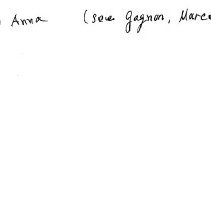 Anna (see Gagnon, Marc